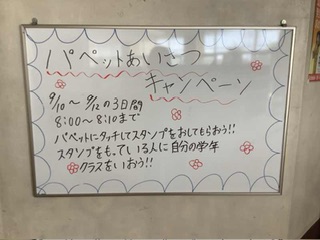 パペットあいさつ
キャンペーン
9/10～9/12の3日間
8:00～8:10まで
パペットにタッチしてスタンプをおしてもらおう!!
スタンプをもっている人に自分の学年
クラスをいおう!!